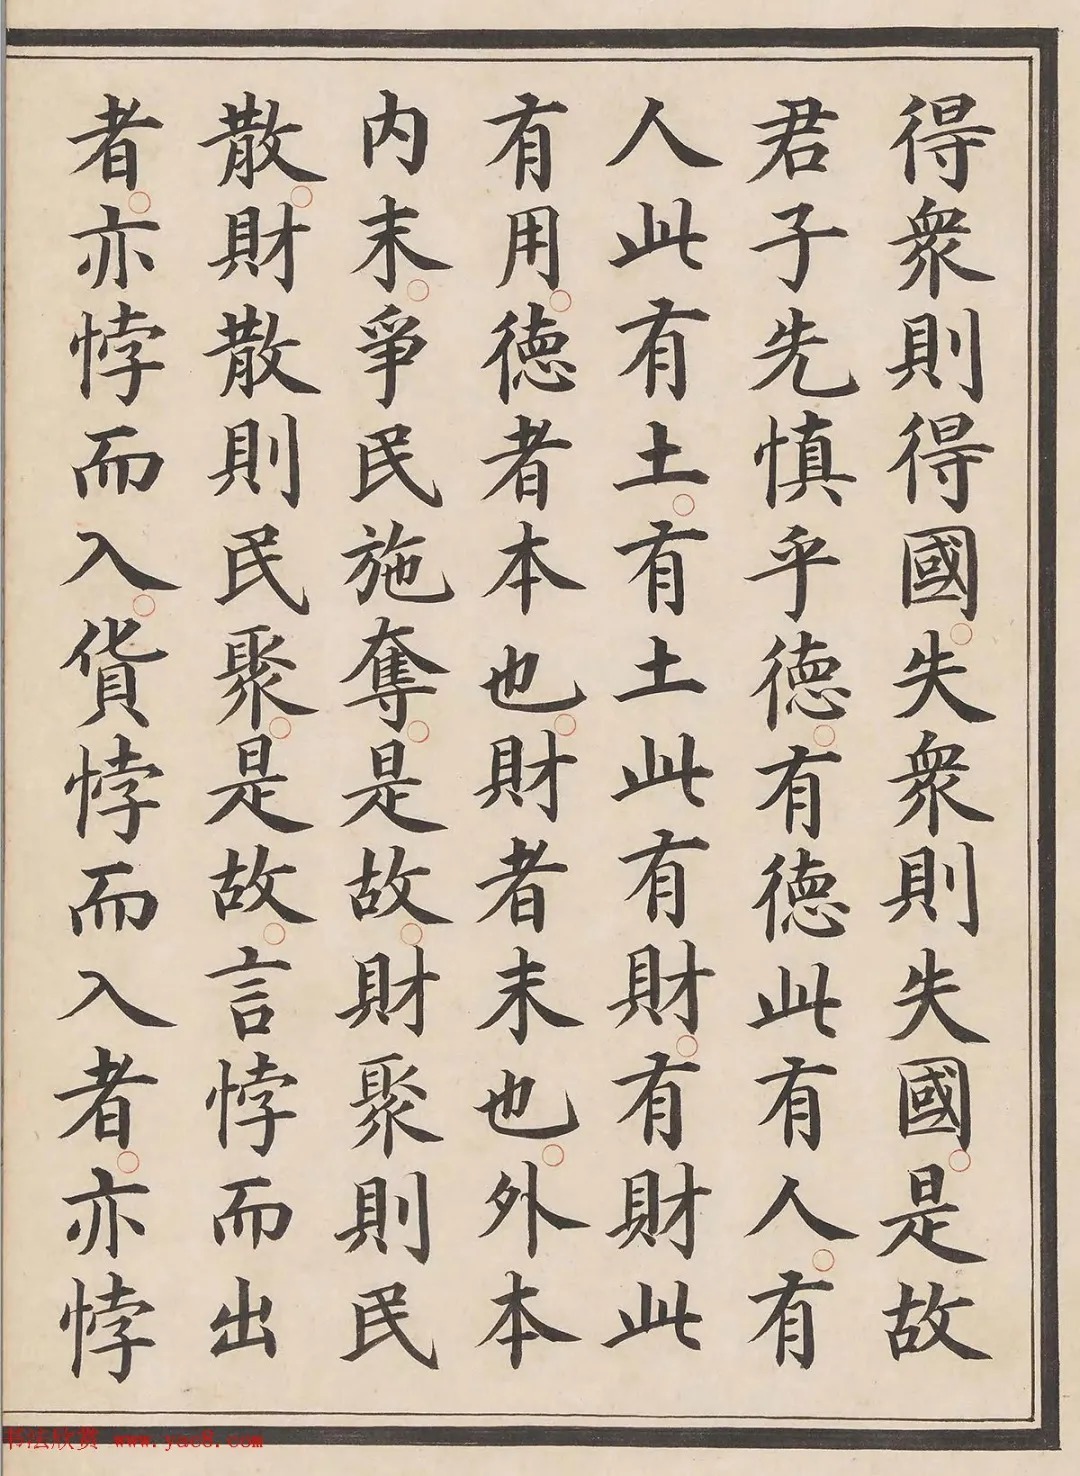 得衆則得國。失衆則失國。是故
君子先慎乎德。有德此有人。有
人此有土。有土此有財。有財此
有用。德者本也。財者末也。外本
内末。爭民施奪。是故。財聚則民
散。財散則民聚。是故。言悖而出
者。亦悖而入。貨悖而入者。亦悖
书法欣赏 www.yac8.com